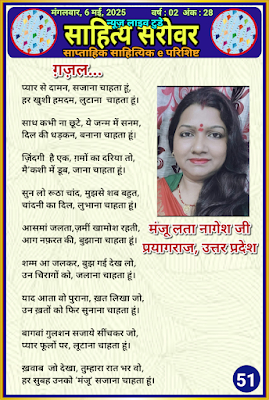 मंगलवार, 6 मई, 2025 वर्ष : 02 अंक : 28
न्यूज लाइव टुडे
साहित्य सरोवर
साप्ताहिक साहित्यिक e परिशिष्ट
ग़ज़ल...
प्यार से दामन, सजाना चाहता हूं,
हर खुशी हमदम, लुटाना चाहता हूं।
साथ कभी ना छूटे, ये जन्म में सनम,
दिल की धड़कन, बनाना चाहता हूं।
ज़िंदगी है एक, ग़मों का दरिया तो,
मै'कशी में डूब, जाना चाहता हूं।
सुन लो रूठा चांद, मुझसे शब बहुत,
चांदनी का दिल, लुभाना चाहता हूं।
आसमां जलता,ज़मीं खामोश रहती,
आग नफ़रत की, बुझाना चाहता हूं।
शम्म आ जलकर, बुझ गई देख लो,
उन चिरागों को, जलाना चाहता हूं।
याद आता वो पुराना, ख़त लिखा जो,
उन ख़तों को फिर सुनाना चाहता हूं।
बागवां गुलशन सजाये सींचकर जो,
प्यार फूलों पर, लूटाना चाहता हूं।
ख़्वाब जो देखा, तुम्हारा रात भर वो,
हर सुबह उनको 'मंजू' सजाना चाहता हूं।
मंजू लता नागेश जी
प्रयागराज, उत्तर प्रदेश
51